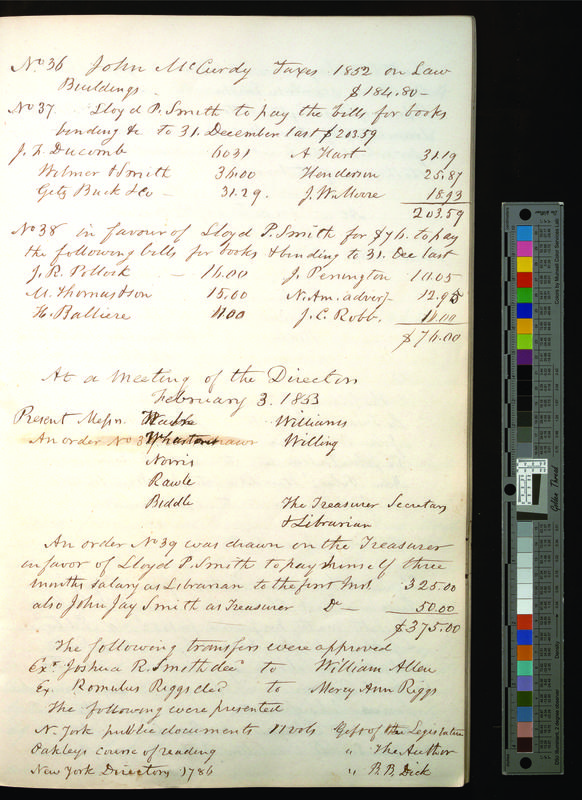 No 36 John McCurdy Taxes 1852 on Law
Buildings. $184.80-
No 37 Lloyd P. Smith to pay the bills for books
binding &c to 31. December last $203.59
J. F. Ducomb 60 31 A Hart 31.19
Wilmer & Smith 36.00 Henderson 25.87
Getz Buck & Co - 31.29. J. W. Moore 18.93
203.59
No 38 in favour of Lloyd P. Smith for $76. to pay
the following bills for books & binding to 31. Dec last
J. R. Pollock - 16.00 J. Penington 10.05
M. Thomas & son 15.00 N. Am. (adver)- 12.95
H. Balliere 11 00 J. C. Robb. 11.00
$76.00
At a Meeting of the Directors
February 3. 1853
Present Messrs. Williams
An order No 3 drawn Willing
Norris
Rawle
Biddle The Treasurer Secretary
& Librarian
An order No 39 was drawn on the Treasurer
in favor of Lloyd P. Smith to pay himself three
months salary as Librarian to the first Inst. 325.00
also John Jay Smith as Treasurer Do - 50.00
$375.00
The following transfers were approved
Exr. Joshua R. Smith decd to William Allen
Ex. Romulus Riggs decd to Mercy Ann Riggs
The following were presented
N. York public documents 11 vols Gift of the Legislature
Oakleys course of reading " The Author
New York Directory 1786 " B. B. Dick
Golden Thread